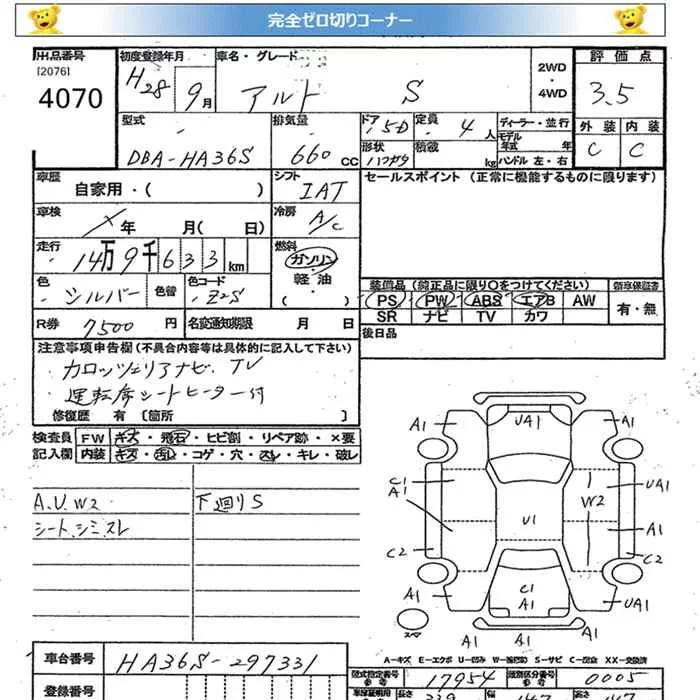 完全ゼロ切りコーナー
出品番号 初度登録年月 車名・グレード 2WD ・ 4WD 評価点
[2076]
4070 H28 9月 アルト S 3.5
型式 排気量 ドア 5D 定員 4人 ディーラー・並行 外装 内装
モデル年式 年
DBA-HA36S 660cc 形状 ハッチバック 積載 kg ハンドル 左・右 C C
車歴 自家用・( ) シフト IAT セールスポイント (正常に機能するものに限ります)
車検 年 月( 日) 冷房 A/C
走行 14万9千633km 燃料 ガソリン
軽油
・( )
色 シルバー 色替 色コード Z2S 装備品 (純正品に限り○をつけてください) 新車保証書
PS PW ABS エアB AW 有・無
SR ナビ TV カワ
R券 7500円 名変通知期限 月 日 後日品
注意事項申告欄 (不具合内容等は具体的に記入して下さい)
カロッツェリアナビ、TV
運転席シートヒーター付
修復歴 有 [箇所 ]
検査員 FW キズ・飛石・ヒビ割・リペア跡・×要
記入欄 内装 キズ・汚れ・コゲ・穴・スレ・キレ・破レ
A.U.W2 下廻りS
シート、シミ、スレ
A1 UA1 A1
C1 A1 W2 UA1
U1 A1
C2 C2
A1 C1 A1 UA1
スペア
A1 A1 A1
A-キズ E-エクボ U-凹み W-波補修 S-サビ C-腐食 XX-交換済
車台番号 HA36S-297331
型式指定番号 17954 類別区分番号 0005
登録番号
長さ 339 幅 147 高さ 147